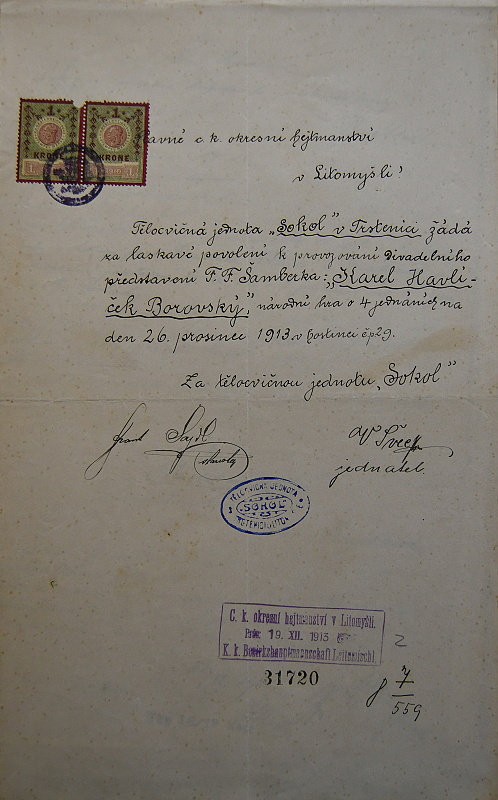 KRONE KRONE
1 1
c. k. okresní hejtmanství
v Litomyšli!
Tělocvičná jednota „Sokol“ v Trstenici žádá
za laskavé povolení k provozování divadelního
představení F. F. Šamberka: „Karel Havlí-
ček Borovský“, národní hra o 4 jednáních na
den 26. prosince 1913 v hostinci čp 29.
Za tělocvičnou jednotu „Sokol“
Sajdl
starosta
V Švec
jednatel.
TĚLOCVIČNÁ JEDNOTA
SOKOL
C. k. okresní hejtmanství v Litomyšli.
Präs: 19. XII. 1913
K. k. Bezirkshauptmannschaft Leitomischl.
2
31720
7
559